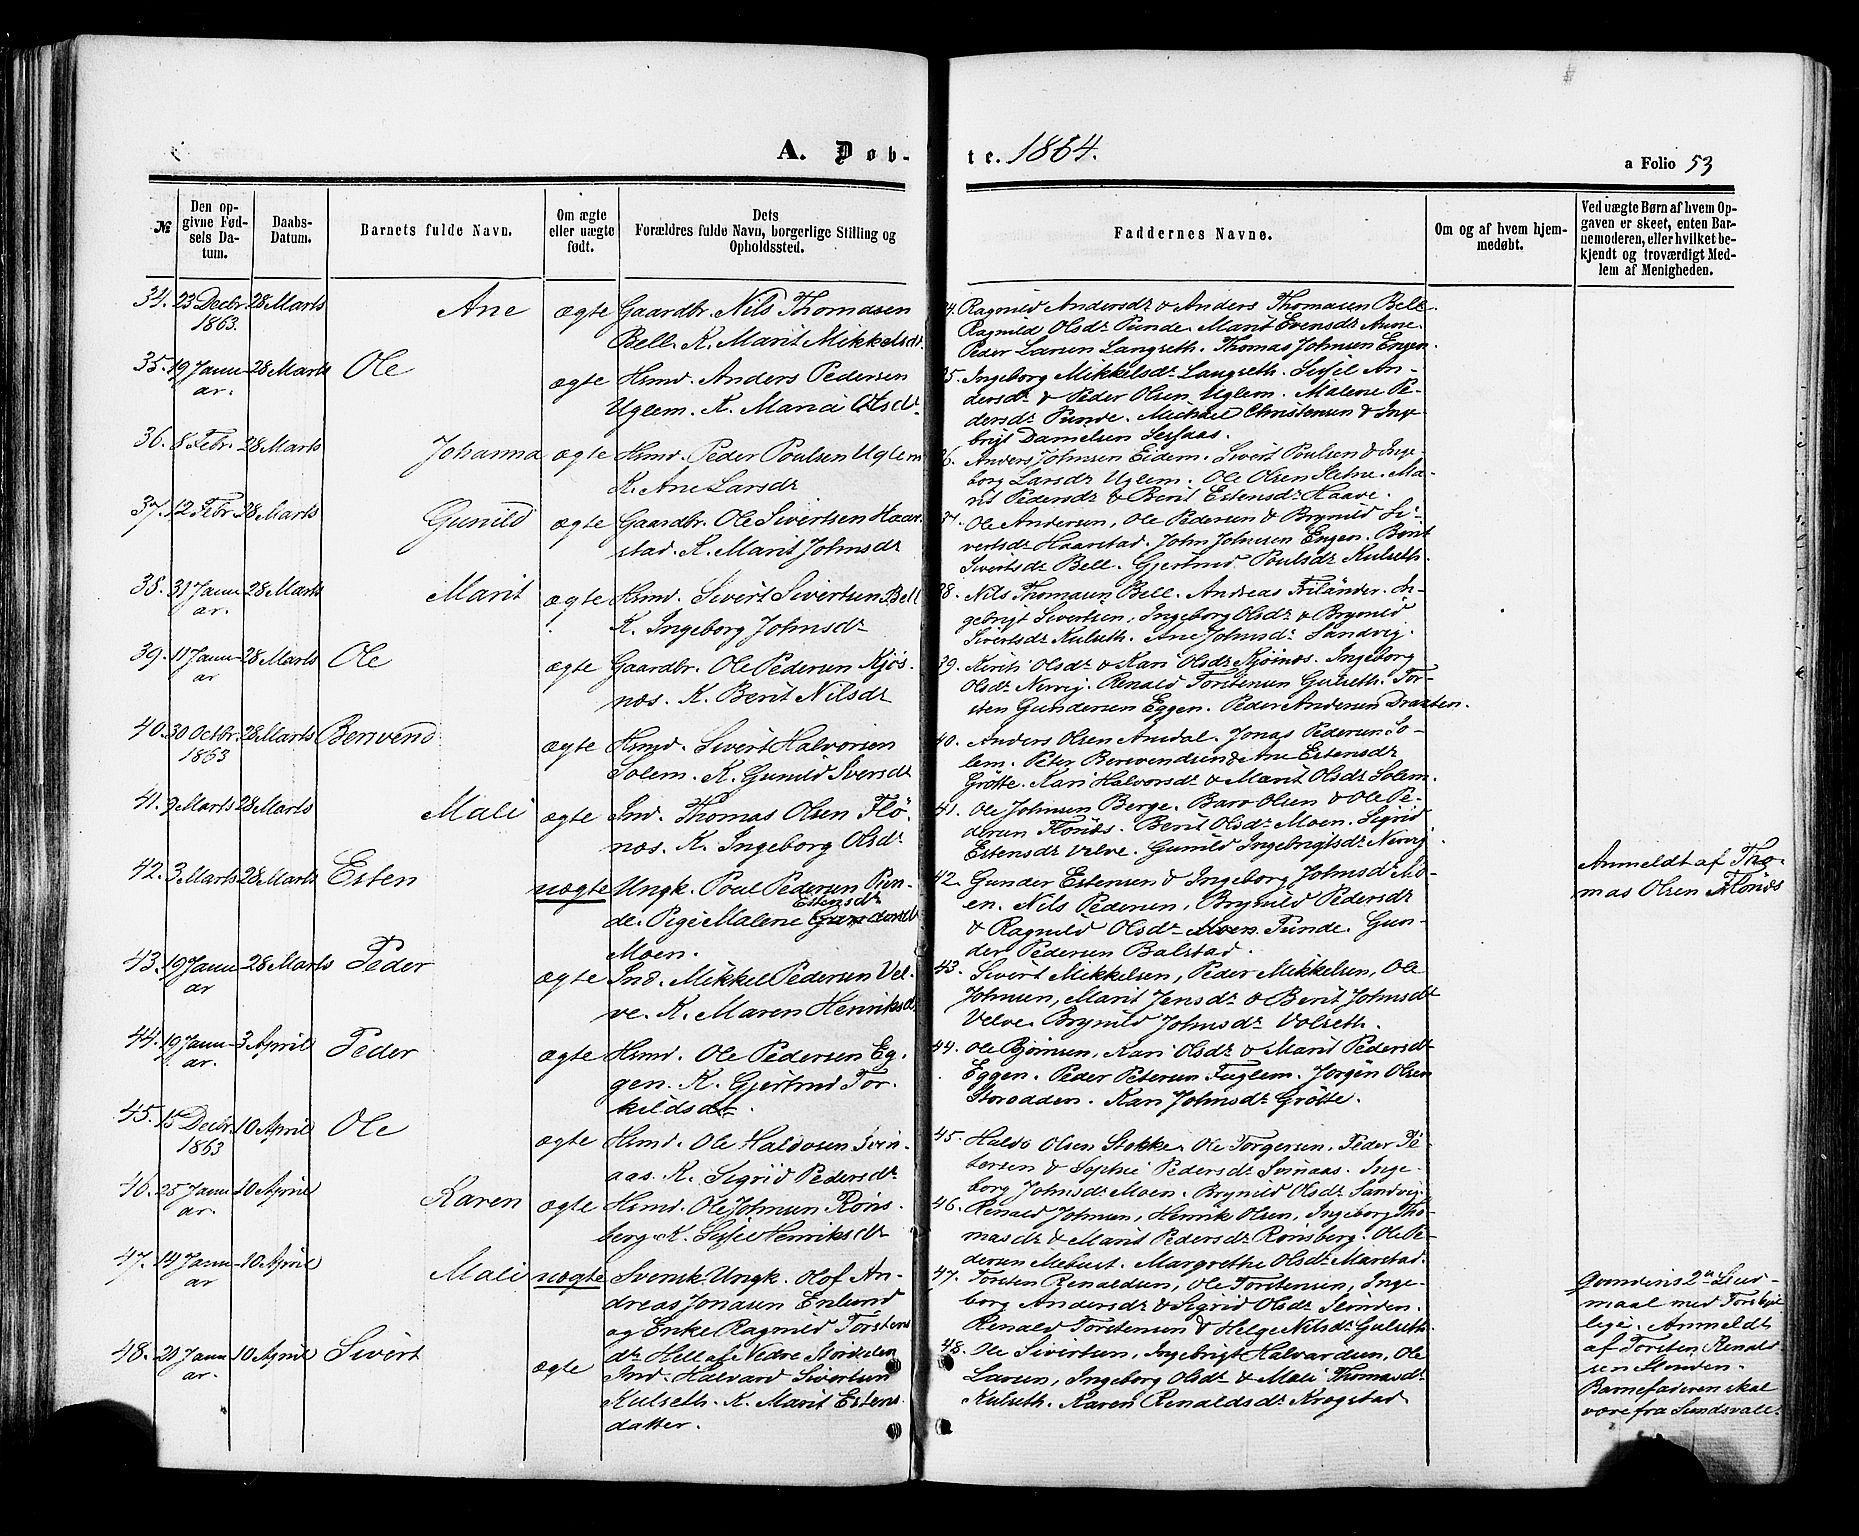 A. Døb-
te. 1864.
a Folio 53
№
Den op-
givne Fød-
sels Da-
tum.
Daabs-
Datum.
Barnets fulde Navn.
Om ægte
eller uægte
født.
Dets
Forældres fulde Navn, borgerlige Stilling og
Opholdssted.
Faddernes Navne.
Om og af hvem hjem-
medøbt.
Ved uægte Børn af hvem Op-
gaven er skeet, enten Bar-
nemoderen, eller hvilket be-
kjendt og troværdigt Med-
lem af Menigheden.
34. 23 Decbr 1863. 28 Marts Ane ægte
Gaardbr. Nils Thomasen
Bell. K. Marit Mikkelsdr
34. Ragnild Andersdr & Anders Thomasen Bell.
Ragnild Olsdr Punde. Marit Evensdr Aune.
Peder Larsen Langseth. Thomas Johnsen Engen.
35. 19 Janu-
ar. 28 Marts Ole ægte
Hsmd. Anders Pedersen
Uglem. K. Maria Olsdr
35. Ingeborg Mikkelsdr Langseth. Sisil An-
dersdr & Peder Olsen Uglem. Malene Pe-
dersdr Punde. Michael Christensen & Ing-
brigt Danielsen Sesaas.
36. 8 Febr. 28 Marts Johanna ægte
Hsmd. Peder Poulsen Uglem
K. Ane Larsdr
36. Anders Johnsen Eidem. Sivert Poulsen & Inge-
borg Larsdr Uglem. Ole Olsen Sletne. Ma-
rit Pedersdr & Berit Estensdr Haave.
37. 12 Febr. 28 Marts Gunild ægte
Gaardbr. Ole Sivertsen Haar-
stad. K. Marit Johnsdr
37. Ole Andersen, Ole Pedersen & Brynild Si-
vertsdr Haarstad. John Johnsen Engen. Berit
Sivertsdr Bell. Gjertrud Poulsdr Kulseth.
38. 31 Janu-
ar. 28 Marts Marit ægte
Hsmd. Sivert Sivertsen Bell
K. Ingeborg Johnsdr
38. Nils Thomasen Bell. Andreas Friländer. In-
gebrigt Sivertsen, Ingeborg Olsdr & Brynild
Sivertsdr Kulseth. Ane Johnsdr Sandvig.
39. 11 Janu-
ar 28 Marts Ole ægte
Gaardbr. Ole Pedersen Kjøs-
næs. K. Berit Nilsdr
39. Kirsti Olsdr & Kari Olsdr Kjøsnæs. Ingeborg
Olsdr Nervig. Renald Torstensen Gulseth. Tor-
sten Gundersen Eggen. Peder Andersen Draxten.
40. 30 Octbr. 1863 28 Marts Berrvend ægte
Hsmd. Sivert Halvorsen
Solem. K. Gunild Iversdr
40. Anders Olsen Amdal. Jonas Pedersen So-
lem. Peter Berevendsen & Ane Estensdr
Grøtte. Kari Halvorsdr & Marit Olsdr Solem.
41. 9 Marts 28 Marts Mali ægte
Ind. Thomas Olsen Flö-
næs. K. Ingeborg Olsdr
41. Ole Johnsen Berge. Baro Olsen & Ole Pe-
dersen Flönæs. Berit Olsdr Moen. Sigrid
Estensdr Velve. Gunild Ingebrigtsdr Nervig.
42. 3 Marts 28 Marts Esten uægte
Ungk. Poul Pedersen Pun-
de. Pige Malene Estensdr
Moen.
42. Gunder Estensen & Ingeborg Johnsdr Mo-
en. Nils Pedersen, Brynild Pedersdr
& Ragnild Olsdr Punde. Gun-
der Pedersen Balstad.
Anmeldt af Tho-
mas Olsen Flönæs
43. 19 Janu-
ar 28 Marts Peder ægte
Ind. Mikkel Pedersen Vel-
ve. K. Maren Henriksdr
43. Sivert Mikkelsen, Peder Mikkelsen, Ole
Johnsen, Marit Jensdr & Berit Johnsdr
Velve. Brynild Johnsdr Volseth.
44. 19 Janu-
ar. 3 April Peder ægte
Hsmd. Ole Pedersen Eg-
gen. K. Gjertrud Tor-
kildsdr.
44. Ole Bjørnsen, Kari Olsdr & Marit Pedersdr
Eggen. Peder Petersen Fuglem. Jørgen Olsen
Storodden. Kari Johnsdr Grøtte.
45. 15 Decbr. 1863 10 April Ole ægte
Hsmd. Ole Haldosen Svin-
aas. K. Sigrid Pedersdr
45. Haldo Olsen Stokke. Ole Torgersen, Peder Pe-
tersen & Sophie Pedersdr Svinaas. Inge-
borg Johnsdr Moen. Brynild Olsdr Sandvig.
46. 25 Janu-
ar. 10 April Karen ægte
Hsmd. Ole Johnsen Röns-
berg. K. Sisil Henriksdr
46. Renald Johnsen, Henrik Olsen, Ingeborg Tho-
masdr & Marit Pedersdr Rönsberg. Ole Pe-
dersen Mebust. Margrethe Olsdr Marstad.
47. 14 Janu-
ar 10 April Mali uægte
Svensk Ungk. Olof An-
dreas Jonasen Enlund
og Enke Ragnild Torstens-
dr. Hell af Nedre Stördalen
47. Torsten Renaldsen, Ole Torstensen, Inge-
borg Andersdr & Sigrid Olsdr Slinden.
Renald Torstensen & Helge Nilsdr Gulseth.
Qvindens 2det Leier-
maal med Forskjel-
lige. Anmeldt
af Torsten Renald-
sen Slinden.
Barnefaderen skal
være fra Sundsvall.
48. 20 Janu-
ar. 10 April Sivert ægte
Ind. Halvard Sivertsen
Kulseth. K. Marit Estens-
datter.
48. Ole Sivertsen, Ingebrigt Halvardsen, Ole
Larsen, Ingeborg Olsdr & Mali Thomasdr
Kulseth. Karen Renaldsdr Krogstad.